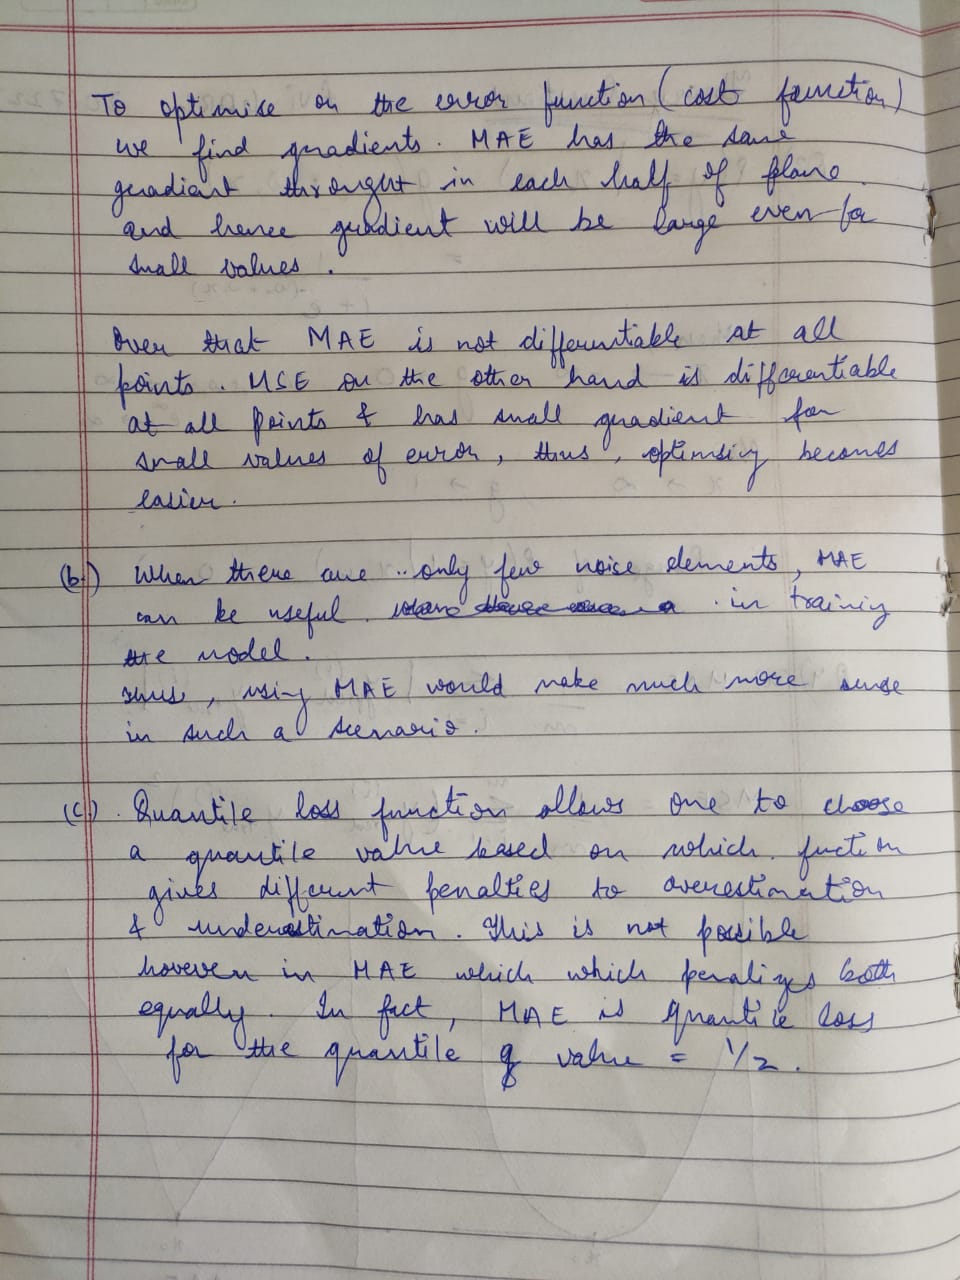 To optimise on the error function (cost function)
we find gradients. MAE has the same
gradiant throught in each half of plane
and hence gradient will be large even for
small values.
Over that MAE is not differentiable at all
points. MSE on the other hand is differentiable
at all points & has small gradient for
small values of error, thus, optimsiy becomes
easier.
(b) When there are only few noise elements, MAE
can be useful. in trainiy
the model.
Thus, using MAE would make much more sense
in such a scenario.
(c) Quantile loss function allows one to choose
a quantile value based on which fuction
gives different penalties to overestimation
& underestimation. This is not possible
hovever in MAE which which penalizes both
equally. In fact, MAE is quantile loss
for the quantile q value = 1/2.